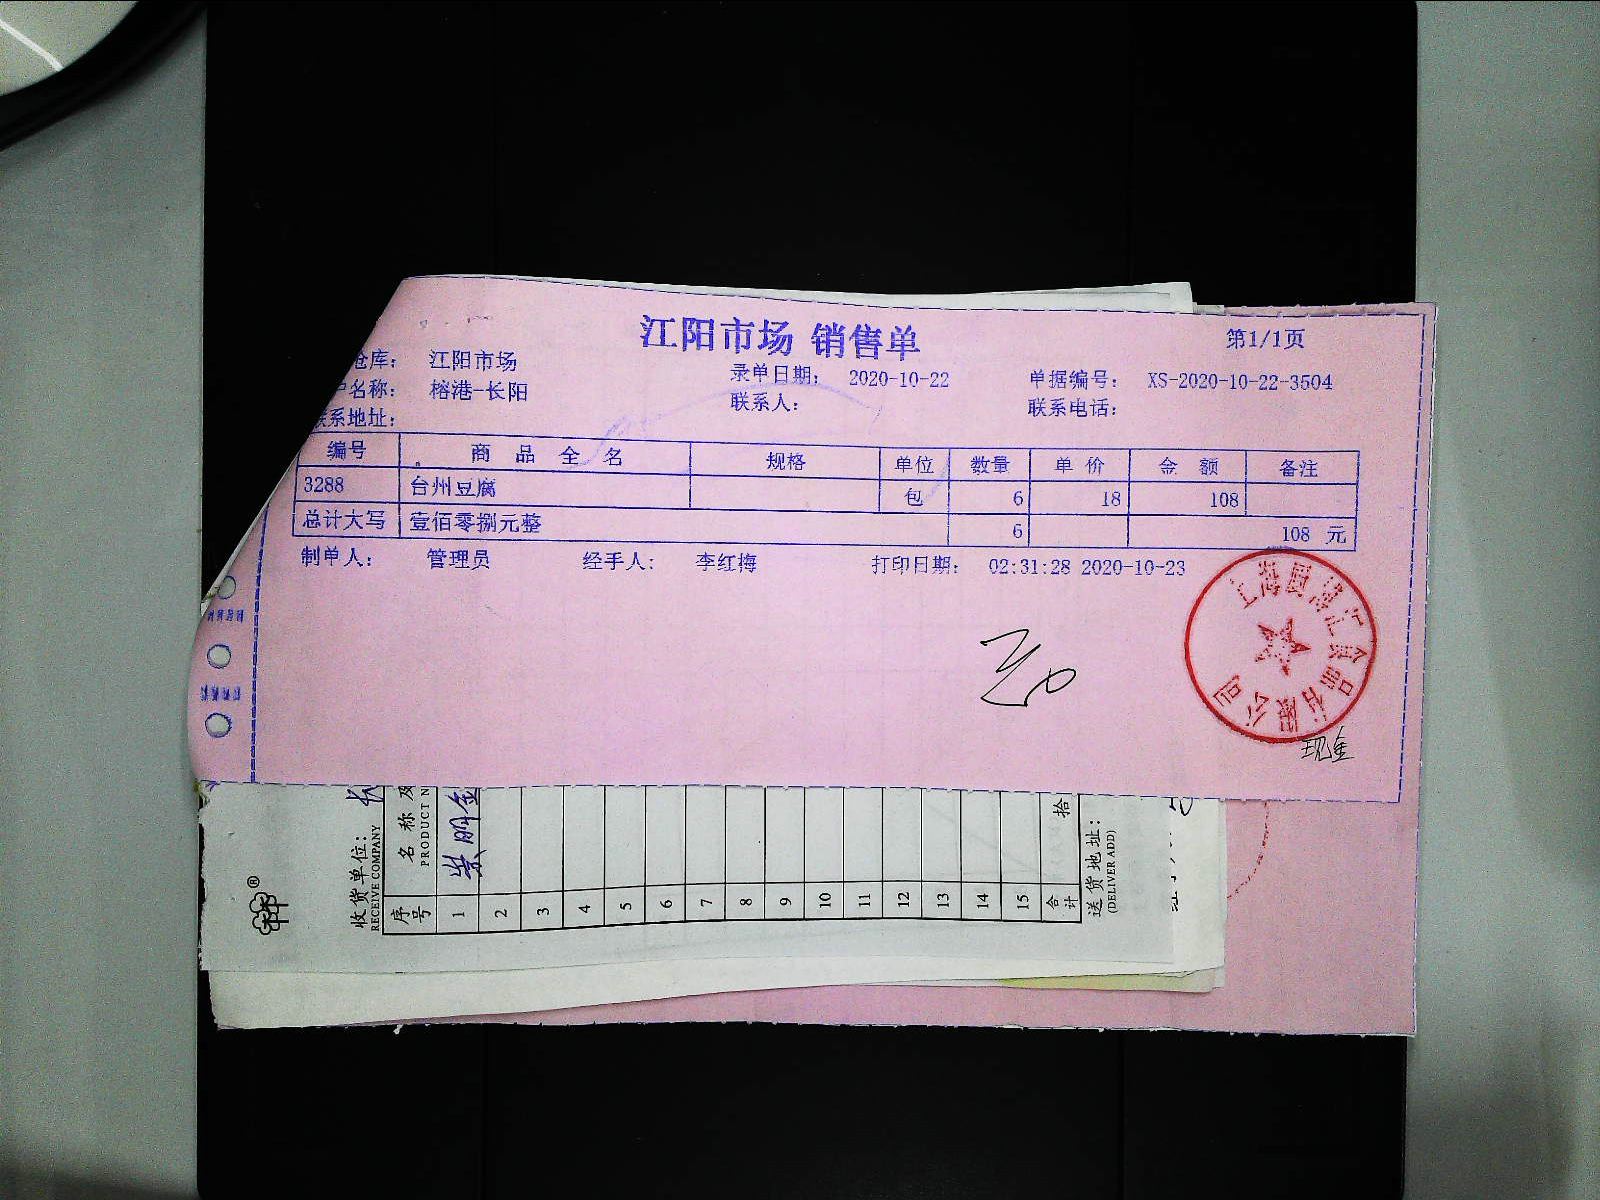 江阳市场 销售单
第1/1页
仓库： 江阳市场
录单日期： 2020-10-22
单据编号： XS-2020-10-22-3504
户名称： 榕港-长阳
联系人：
联系电话：
联系地址：
编号 商 品 全 名 规格 单位 数量 单 价 金 额 备注
3288 台州豆腐 包 6 18 108
总计大写 壹佰零捌元整 6 108 元
制单人： 管理员 经手人： 李红梅 打印日期： 02:31:28 2020-10-23
现金
收货单位： 长
RECEIVE COMPANY
序号 名 称 及
PRODUCT N
1
2
3
4
5
6
7
8
9
10
11
12
13
14
15
合计 拾
送货地址：
(DELIVER ADD)